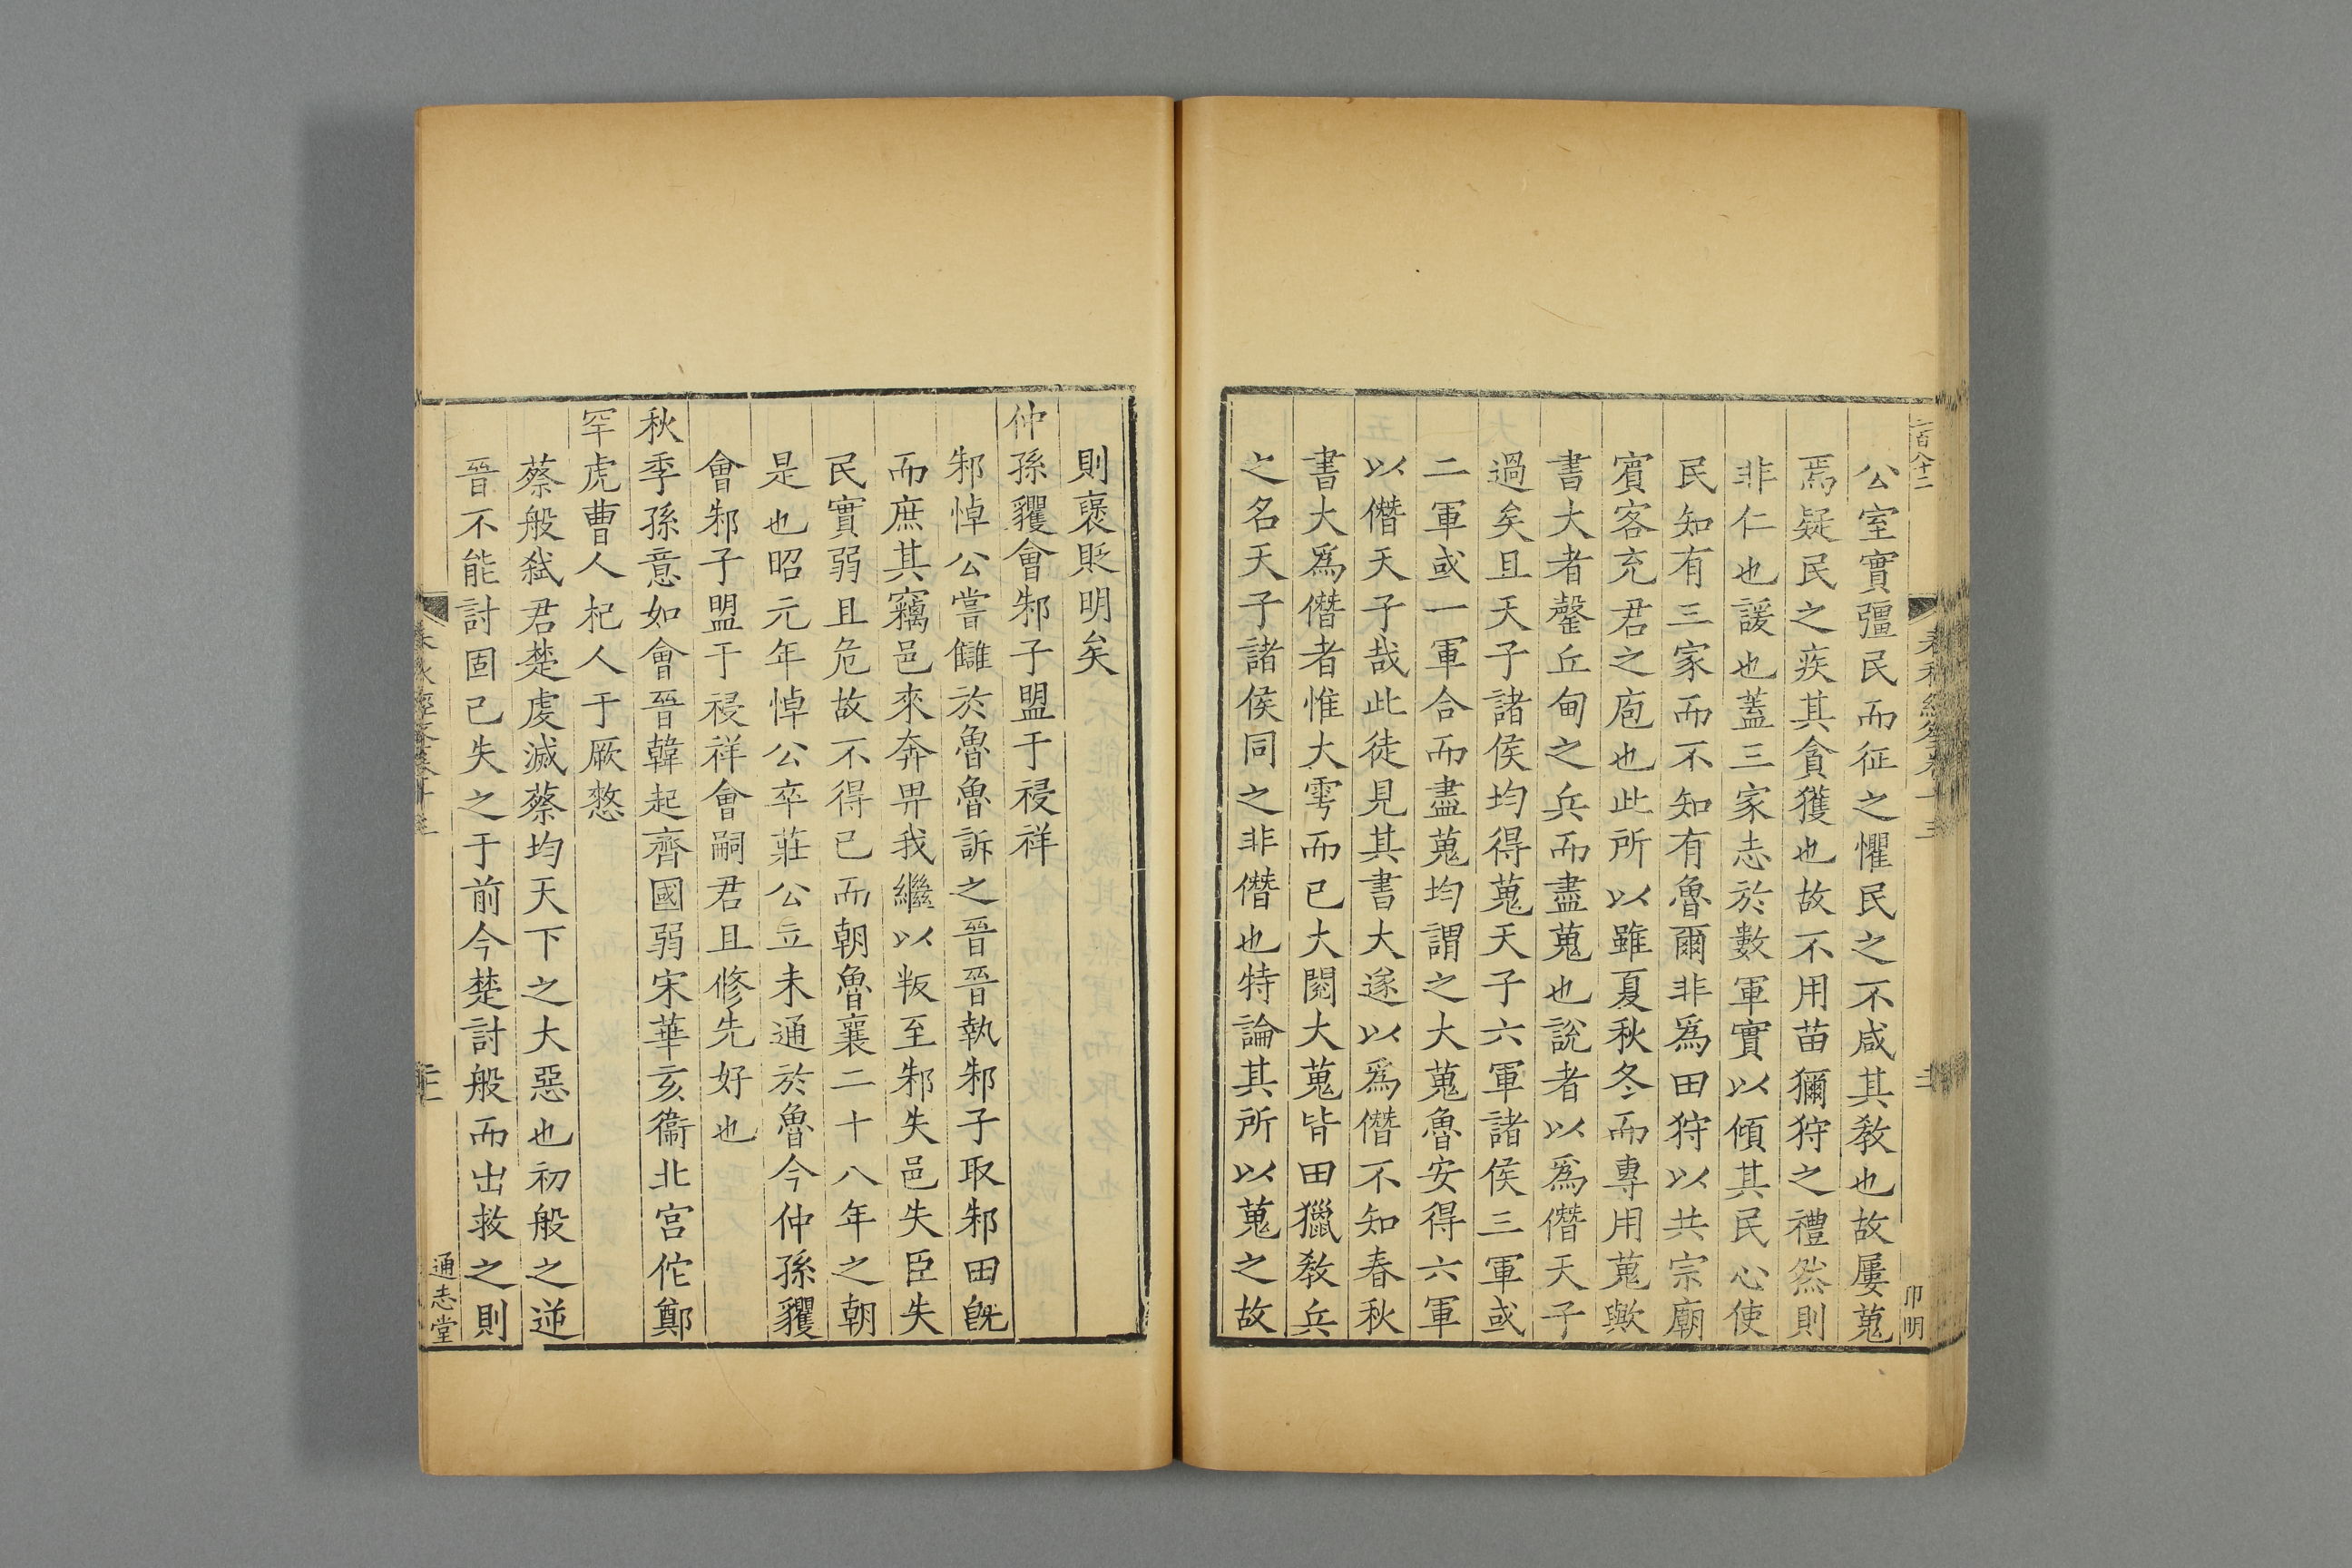 二百八十二
公室實彊民而征之懼民之不咸其敎也故屢蒐
焉疑民之疾其貪獲也故不用苗獮狩之禮然則
非仁也諼也蓋三家志於數軍實以傾其民心使
民知有三家而不知有魯爾非爲田狩以共宗廟
賓客充君之庖也此所以雖夏秋冬而專用蒐歟
書大者罄丘甸之兵而盡蒐也說者以爲僭天子
過矣且天子諸侯均得蒐天子六軍諸侯三軍或
二軍或一軍合而盡蒐均謂之大蒐魯安得六軍
以僭天子哉此徒見其書大遂以爲僭不知春秋
書大爲僭者惟大雩而已大閱大蒐皆田獵敎兵
之名天子諸侯同之非僭也特論其所以蒐之故
則襃貶明矣
仲孫貜會邾子盟于祲祥
邾悼公嘗讎於魯魯訴之晉晉執邾子取邾田旣
而庶其竊邑來奔畀我繼以叛至邾失邑失臣失
民實弱且危故不得已而朝魯襄二十八年之朝
是也昭元年悼公卒莊公立未通於魯今仲孫貜
會邾子盟于祲祥會嗣君且修先好也
秋季孫意如會晉韓起齊國弱宋華亥衞北宮佗鄭
罕虎曹人杞人于厥憖
蔡般弑君楚虔滅蔡均天下之大惡也初般之逆
晉不能討固已失之于前今楚討般而出救之則
通志堂